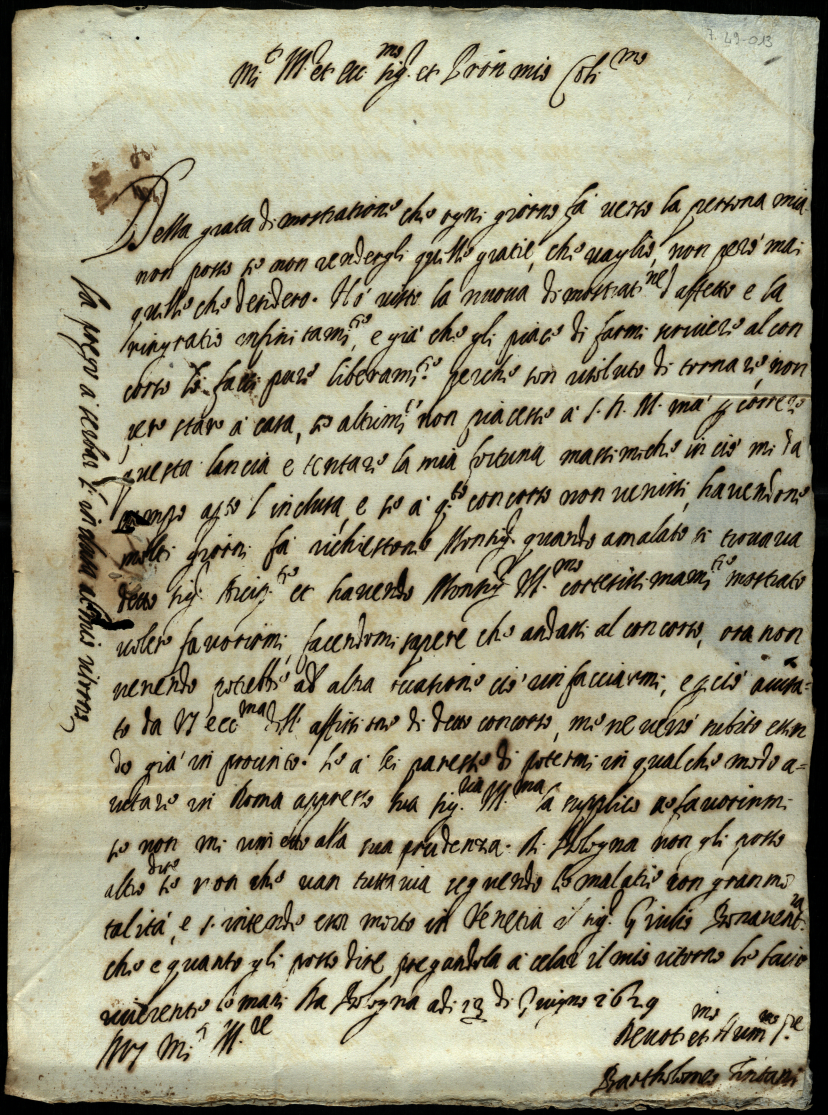 7.49-013
M.to Ill.re et ecc.mo sig.r et Pron mio Col.mo
Della grata dimostratione che ogni giorno fà verso la persona mia
non posso se non rendergli quelle gratie, che vaglio, non però mai
quelle che desidero. Hò visto la nuova dimostrati.ne d'affetto e la
ringratio infinitam.te, e già che gli piace di farmi scrivere al con
corso lo facci pure liberam.te perche son risoluto di tornare, non
pero stare à casa, se altrim.te non piacesse à S. A. M. ma p correre
questa lancia e tentare la mia fortuna massime che in ciò mi dà
animo l'inclusa, e se à q.to concorso non venissi, havendone
molti giorni fà richiestone Monsig.r quando amalato si trovava
detto sig.r et havendo Monsig.r Ill.mo cortesissimam.te mostrato
voler favorirmi, facendomi sapere che andassi al concorso, ora non
venendo potrebbe ad altra occasione ciò rinfacciarmi, e p ciò avisa-
to da V S ecc.ma dell' affissione di detto concorso, me ne verrò subito essen
do già in procinto. Se à lei paresse di potermi in qualche modo a=
iutare in Roma appresso sua sig.ria Ill.ma la supplico à favorirmi
se non mi rimetto alla sua prudenza. Di Bologna non gli posso
altro dire se non che van tuttavia seguendo le malatie con gran mo
talità, e s'intende esser morto in Venetia il sig.r Giulio Bonavent.ra
che e quanto gli posso dire pregandola à celar il mio ritorno le facio
riverentio le mani Da Bologna adi 13 di Giugno 1629
Di V S M.to Ill.re
Devot.mo et Hum.mo S.re
Bartholomeo
La prego à serbar l'inclusa al mio ritorno